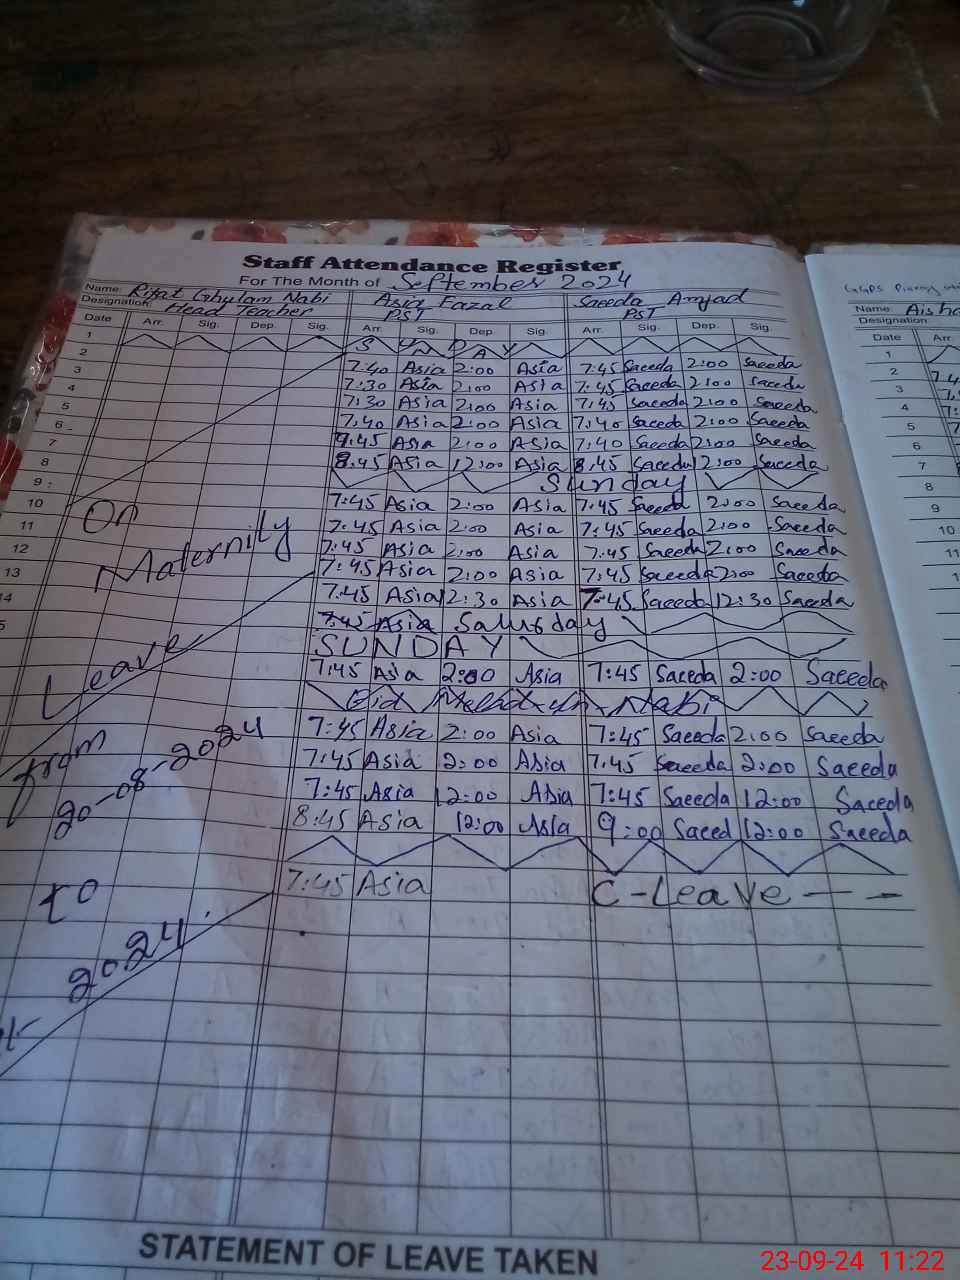 Staff Attendance Register
For The Month of September 2024
Name: Rifat Ghulam Nabi Asia Fazal Saeeda Amjad
Designation: Head Teacher PST PST
Date Arr. Sig. Dep. Sig. Arr. Sig. Dep. Sig. Arr. Sig. Dep. Sig.
1 SUNDAY
2 7:40 Asia 2:00 Asia 7:45 Saeeda 2:00 Saeeda
3 7:30 Asia 2:00 Asia 7:45 Saeeda 2:00 Saeeda
4 7:30 Asia 2:00 Asia 7:45 Saeeda 2:00 Saeeda
5 7:40 Asia 2:00 Asia 7:40 Saeeda 2:00 Saeeda
6 7:45 Asia 2:00 Asia 7:40 Saeeda 2:00 Saeeda
7 8:45 Asia 12:00 Asia 8:45 Saeeda 12:00 Saeeda
8 Sunday
9 7:45 Asia 2:00 Asia 7:45 Saeeda 2:00 Saeeda
10 7:45 Asia 2:00 Asia 7:45 Saeeda 2:00 Saeeda
11 7:45 Asia 2:00 Asia 7:45 Saeeda 2:00 Saeeda
12 7:45 Asia 2:00 Asia 7:45 Saeeda 2:00 Saeeda
13 7:45 Asia 12:30 Asia 7:45 Saeeda 12:30 Saeeda
14 7:45 Asia Saturday
5 SUNDAY
7:45 Asia 2:00 Asia 7:45 Saeeda 2:00 Saeeda
Eid Melad-un-Nabi
7:45 Asia 2:00 Asia 7:45 Saeeda 2:00 Saeeda
7:45 Asia 2:00 Asia 7:45 Saeeda 2:00 Saeeda
7:45 Asia 12:00 Asia 7:45 Saeeda 12:00 Saeeda
8:45 Asia 12:00 Asia 9:00 Saeed 12:00 Saeeda
7:45 Asia C-Leave - -
On
Maternily
Leave
from
20-08-2024
to
2024
STATEMENT OF LEAVE TAKEN
Name: Aisha
Designation:
Date Arr.
1
2 7:4
3
4
5
6
7
8
9
10
11
23-09-24 11:22